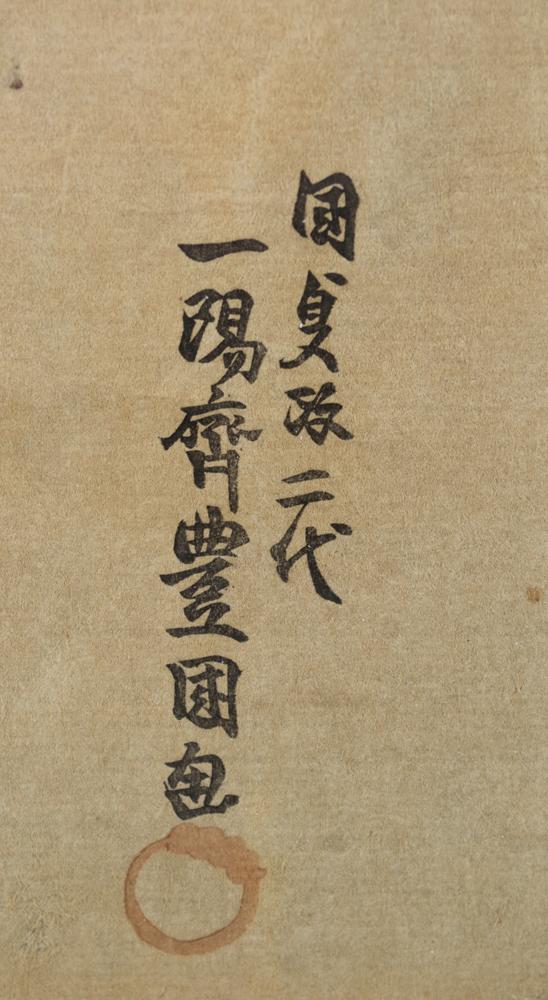 國貞改二代
一陽齋豊國画